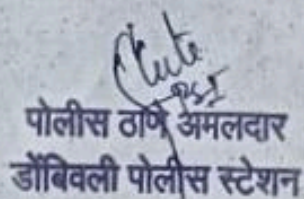 PSI
पोलीस ठाणे अमलदार
डोंबिवली पोलीस स्टेशन